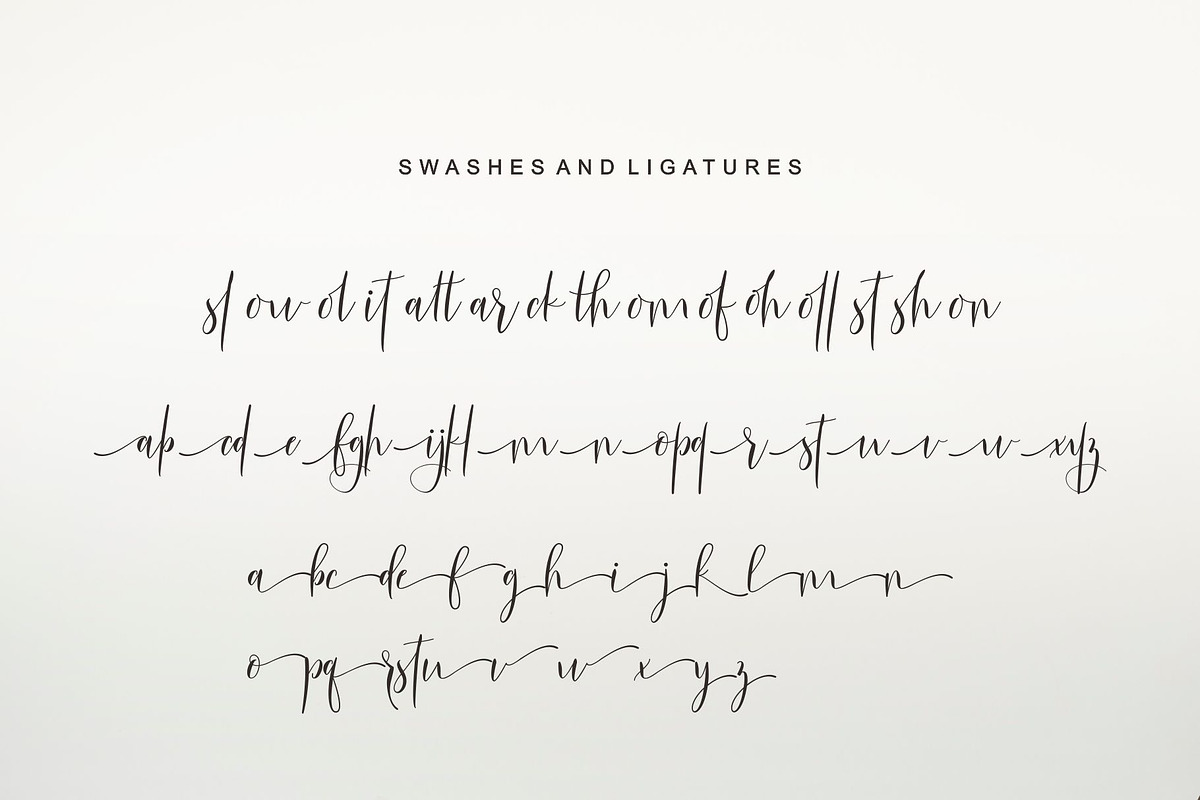 SWASHES AND LIGATURES
sl ow ol it att ar ck th om of oh oll st sh on
abcdefghijklmnopqrstuvwxyz
abcdefghijklmn
opqrstuvwxyz